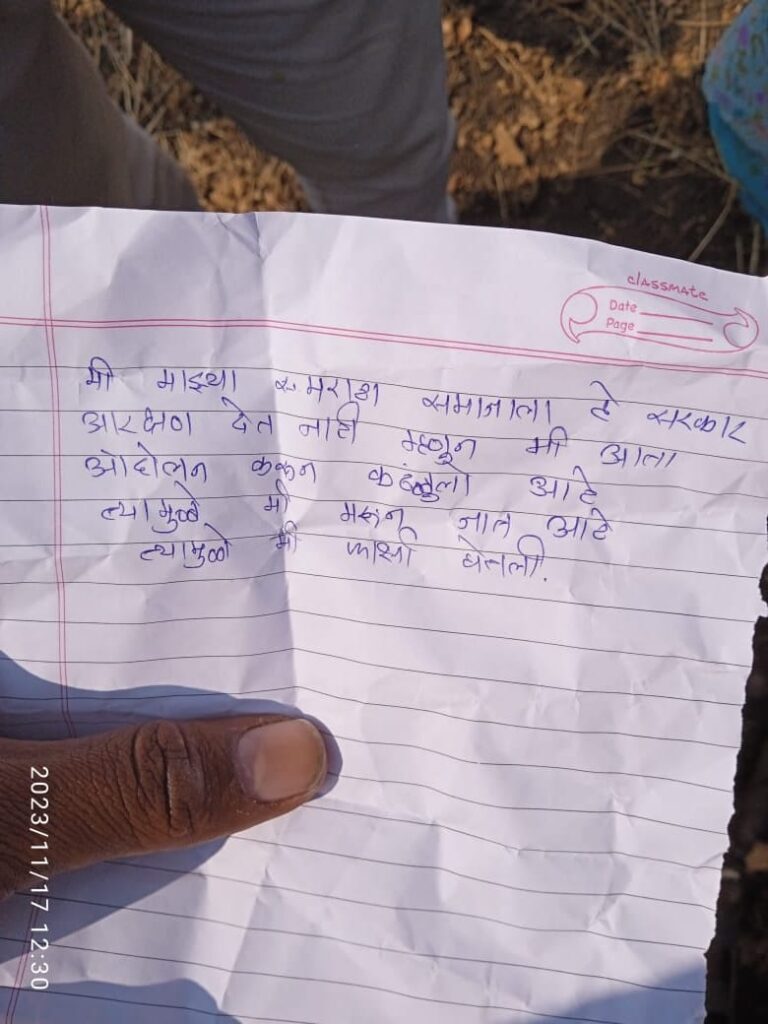 classmate
Date
Page
मी माझ्या मराठा समाजाला हे सरकार
आरक्षण देत नाही म्हणून मी आता
आंदोलन करून आहे
त्यामुळे मी मरून जात आहे
त्यामुळे मी फाशी घेतली.
2023/11/17 12:30